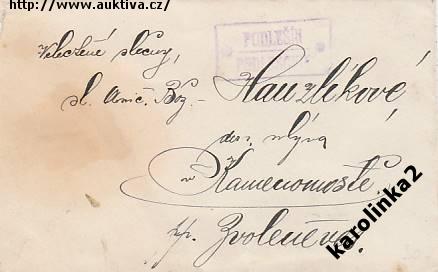 http://www.auktiva.cz/
PODLEŠÍN
Velectěné slečny,
sl. Anič. Bož. Hauzlíkové
v Kamenomostě
p. Zvoleněves.
karolinka2